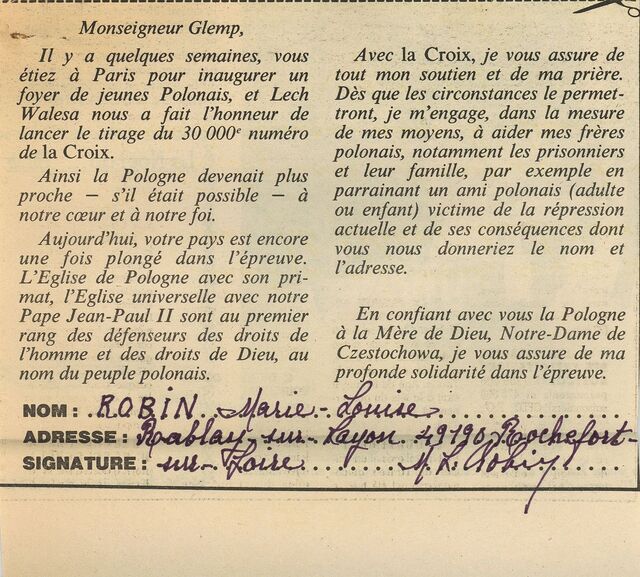 Monseigneur Glemp,
Il y a quelques semaines, vous
étiez à Paris pour inaugurer un
foyer de jeunes Polonais, et Lech
Walesa nous a fait l'honneur de
lancer le tirage du 30 000e numéro
de la Croix.
Ainsi la Pologne devenait plus
proche — s'il était possible — à
notre cœur et à notre foi.
Aujourd'hui, votre pays est encore
une fois plongé dans l'épreuve.
L'Eglise de Pologne avec son pri-
mat, l'Eglise universelle avec notre
Pape Jean-Paul II sont au premier
rang des défenseurs des droits de
l'homme et des droits de Dieu, au
nom du peuple polonais.
Avec la Croix, je vous assure de
tout mon soutien et de ma prière.
Dès que les circonstances le permet-
tront, je m'engage, dans la mesure
de mes moyens, à aider mes frères
polonais, notamment les prisonniers
et leur famille, par exemple en
parrainant un ami polonais (adulte
ou enfant) victime de la répression
actuelle et de ses conséquences dont
vous nous donneriez le nom et
l'adresse.
En confiant avec vous la Pologne
à la Mère de Dieu, Notre-Dame de
Czestochowa, je vous assure de ma
profonde solidarité dans l'épreuve.
NOM : ROBIN Marie-Louise
ADRESSE : Rablay-sur-Layon 49190 Rochefort-
SIGNATURE : sur-Loire M. L. Robin